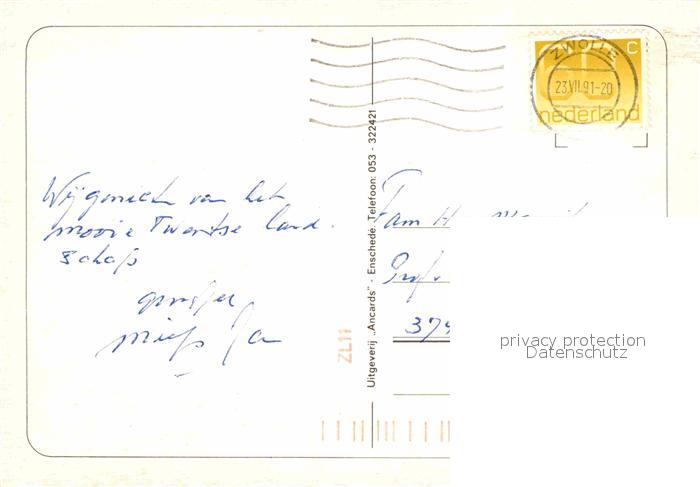 ZWOLLE
C
23.VII.91-20
nederland
Wij genieten van het
mooie Twentse land-
schap
Jan
Uitgeverij „Ancards" - Enschede. Telefoon: 053 - 322421
ZL11
Fam H
Prof
374
privacy protection
Datenschutz